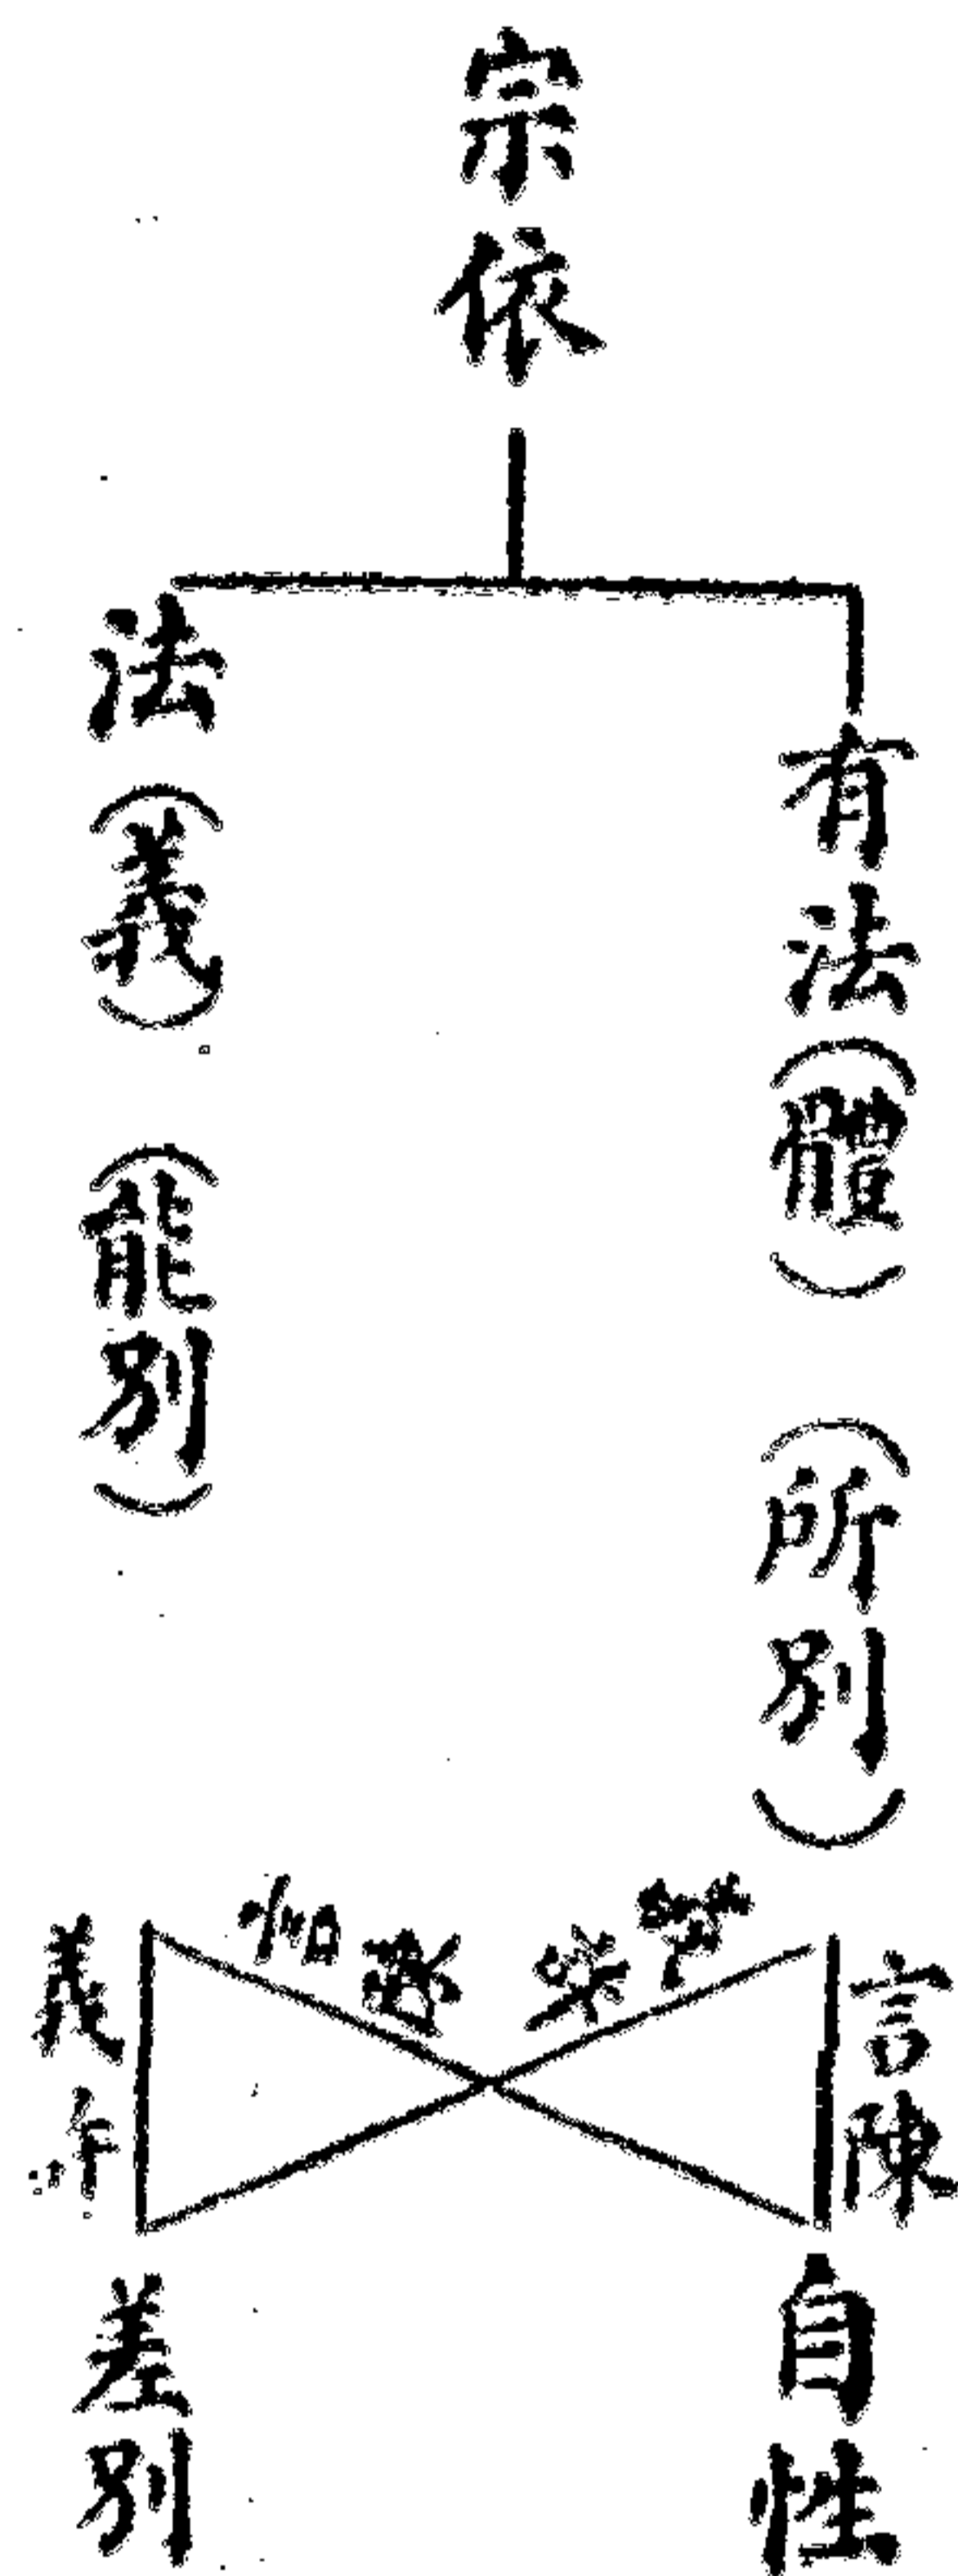 宗依
有法(體) (所別)
法(義) (能別)
言陳
義
自性
差別